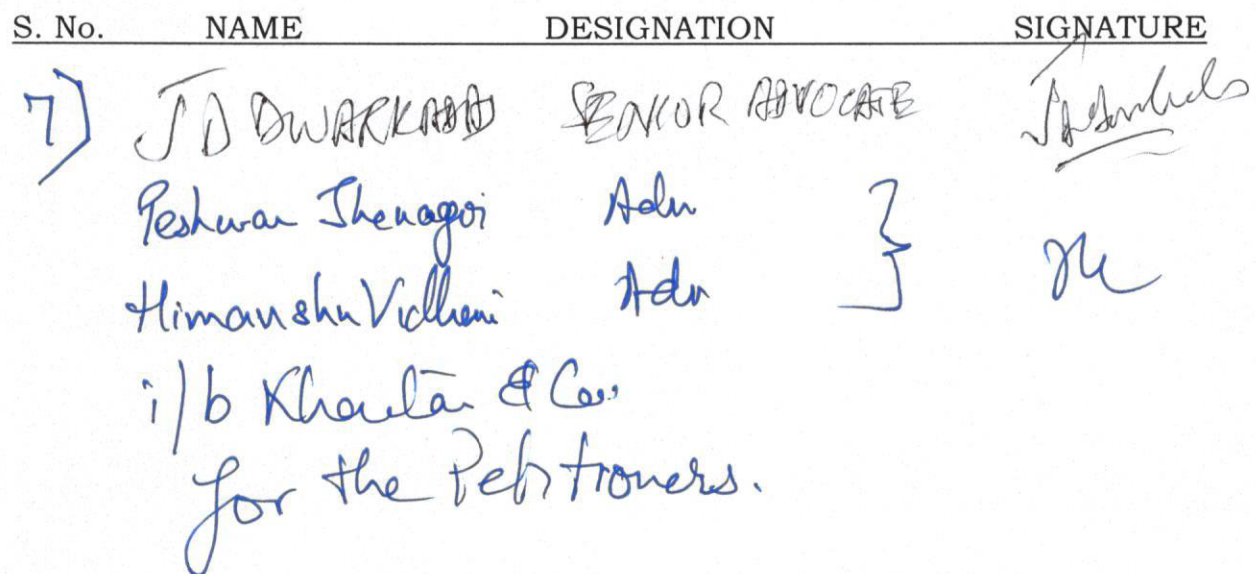 S. No. NAME DESIGNATION SIGNATURE
7) J D DWARKADAS SENIOR ADVOCATE
Peshwan Jhenagoi Adv
Himanshu Vidhani Adv
i/b Khaitan & Co.
for the Petitioners.